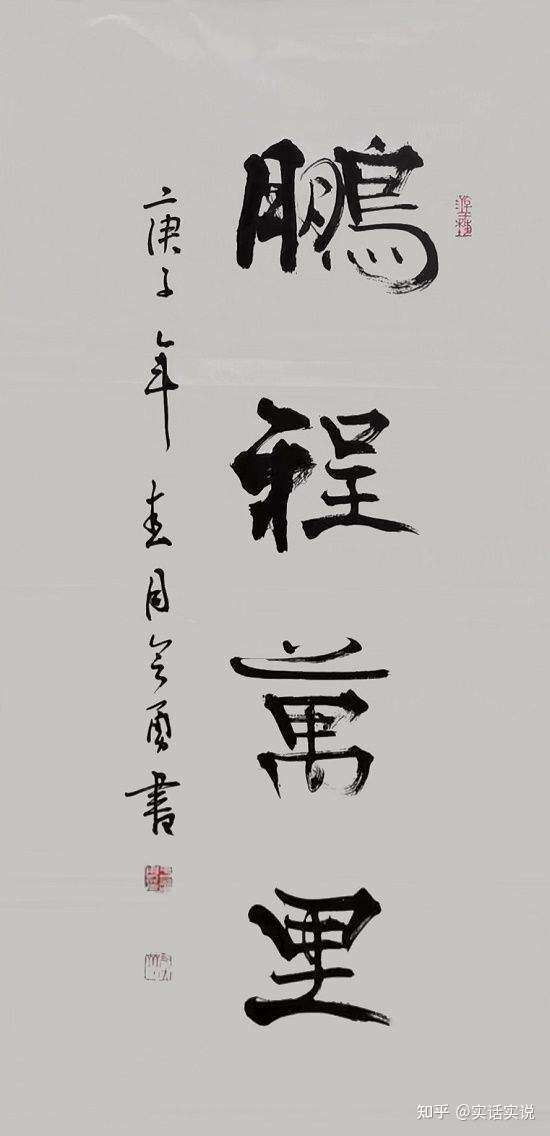 鵬程萬里
庚子年春月
勇書
知乎 @实话实说